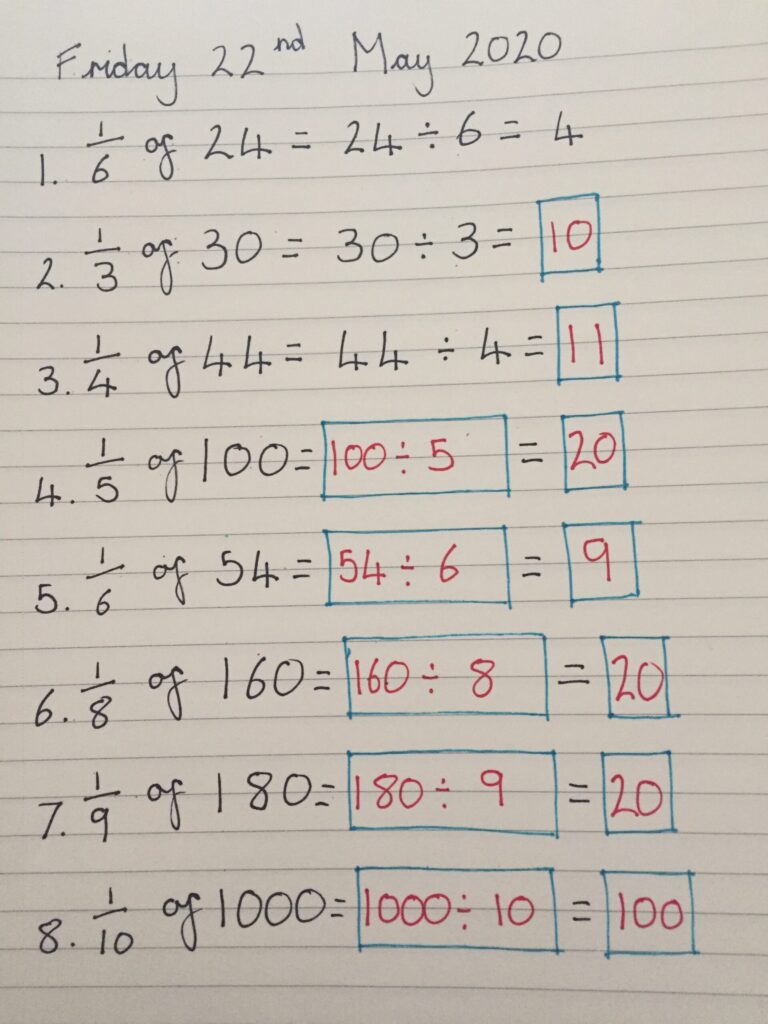 Friday 22nd May 2020
1. 1/6 of 24 = 24 ÷ 6 = 4
2. 1/3 of 30 = 30 ÷ 3 = 10
3. 1/4 of 44 = 44 ÷ 4 = 11
4. 1/5 of 100 = 100 ÷ 5 = 20
5. 1/6 of 54 = 54 ÷ 6 = 9
6. 1/8 of 160 = 160 ÷ 8 = 20
7. 1/9 of 180 = 180 ÷ 9 = 20
8. 1/10 of 1000 = 1000 ÷ 10 = 100